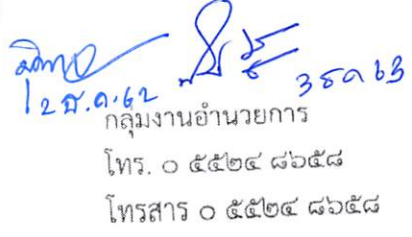 12 ธ.ค. 62
3 ธค 63
กลุ่มงานอำนวยการ
โทร. ๐ ๕๕๒๔ ๘๖๕๘
โทรสาร ๐ ๕๕๒๔ ๘๖๕๘